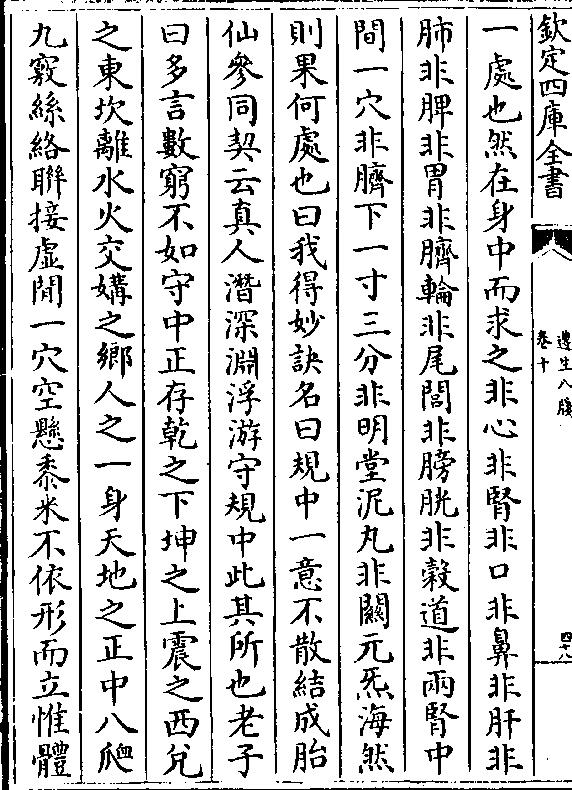 欽定四庫全書
遵生八牋
卷十
四十八
一處也然在身中而求之非心非腎非口非鼻非肝非
肺非脾非胃非臍輪非尾閭非膀胱非穀道非兩腎中
間一穴非臍下一寸三分非明堂泥丸非關元炁海然
則果何處也曰我得妙訣名曰規中一意不散結成胎
仙參同契云真人潛深淵浮游守規中此其所也老子
曰多言數窮不如守中正存乾之下坤之上震之西兌
之東坎離水火交媾之鄉人之一身天地之正中八𩕄
九竅絲絡聯接虛間一穴空懸黍米不依形而立惟體